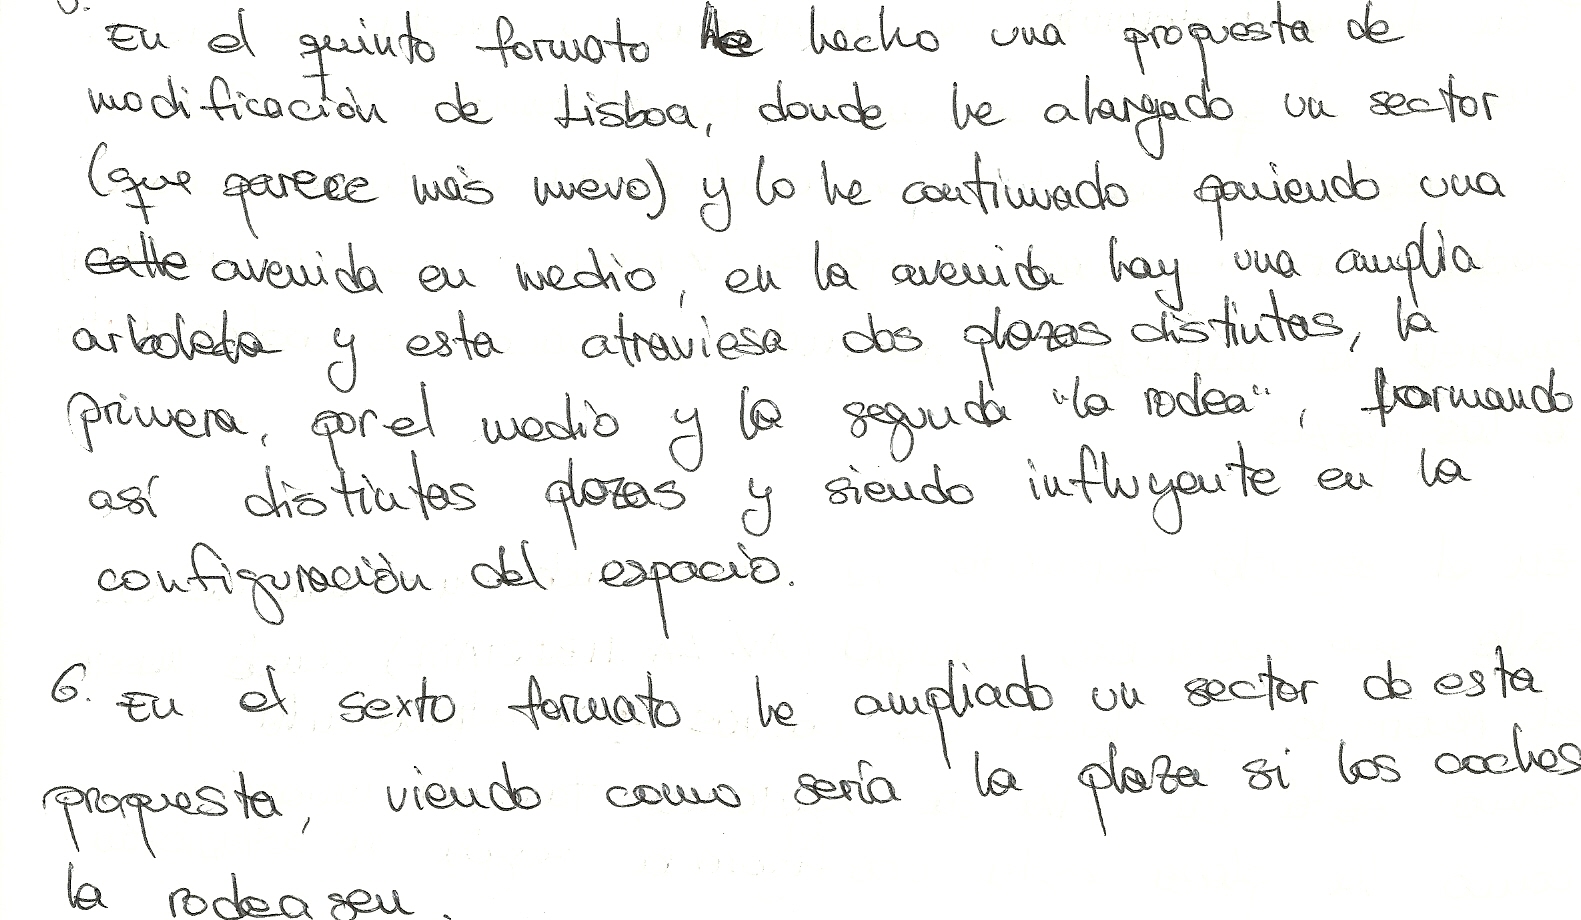 5. En el quinto formato he hecho una propuesta de
modificación de Lisboa, donde he alargado un sector
(que parece más nuevo) y lo he continuado poniendo una
calle avenida en medio, en la avenida hay una amplia
arboleda y esta atraviesa dos plazas distintas, la
primera, por el medio y la segunda "la rodea", formando
así distintas plazas y siendo influyente en la
configuración del espacio.
6. En el sexto formato he ampliado un sector de esta
propuesta, viendo como sería la plaza si los coches
la rodeasen.